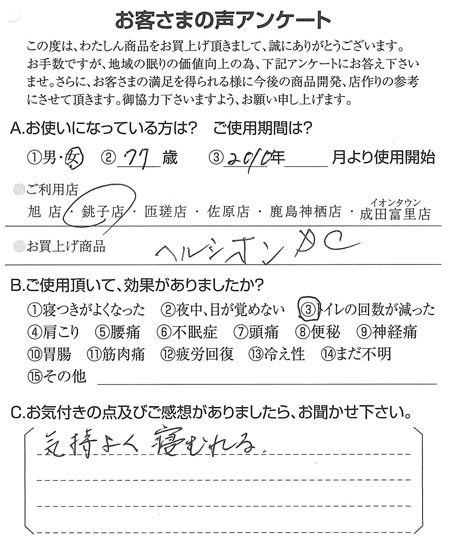 お客さまの声アンケート
この度は、わたしん商品をお買上げ頂きまして、誠にありがとうございます。
お手数ですが、地域の眠りの価値向上の為、下記アンケートにお答え下さい
ませ。さらに、お客さまの満足を得られる様に今後の商品開発、店作りの参考
にさせて頂きます。御協力下さいますよう、お願い申し上げます。
A.お使いになっている方は? ご使用期間は?
①男・女 ② 77 歳 ③ 2010年 月より使用開始
ご利用店
旭店・銚子店・匝瑳店・佐原店・鹿島神栖店・イオンタウン成田富里店
お買上げ商品 ヘルシオン DC
B.ご使用頂いて、効果がありましたか?
①寝つきがよくなった ②夜中、目が覚めない ③トイレの回数が減った
④肩こり ⑤腰痛 ⑥不眠症 ⑦頭痛 ⑧便秘 ⑨神経痛
⑩胃腸 ⑪筋肉痛 ⑫疲労回復 ⑬冷え性 ⑭まだ不明
⑮その他
C.お気付きの点及びご感想がありましたら、お聞かせ下さい。
気持よく寝むれる。